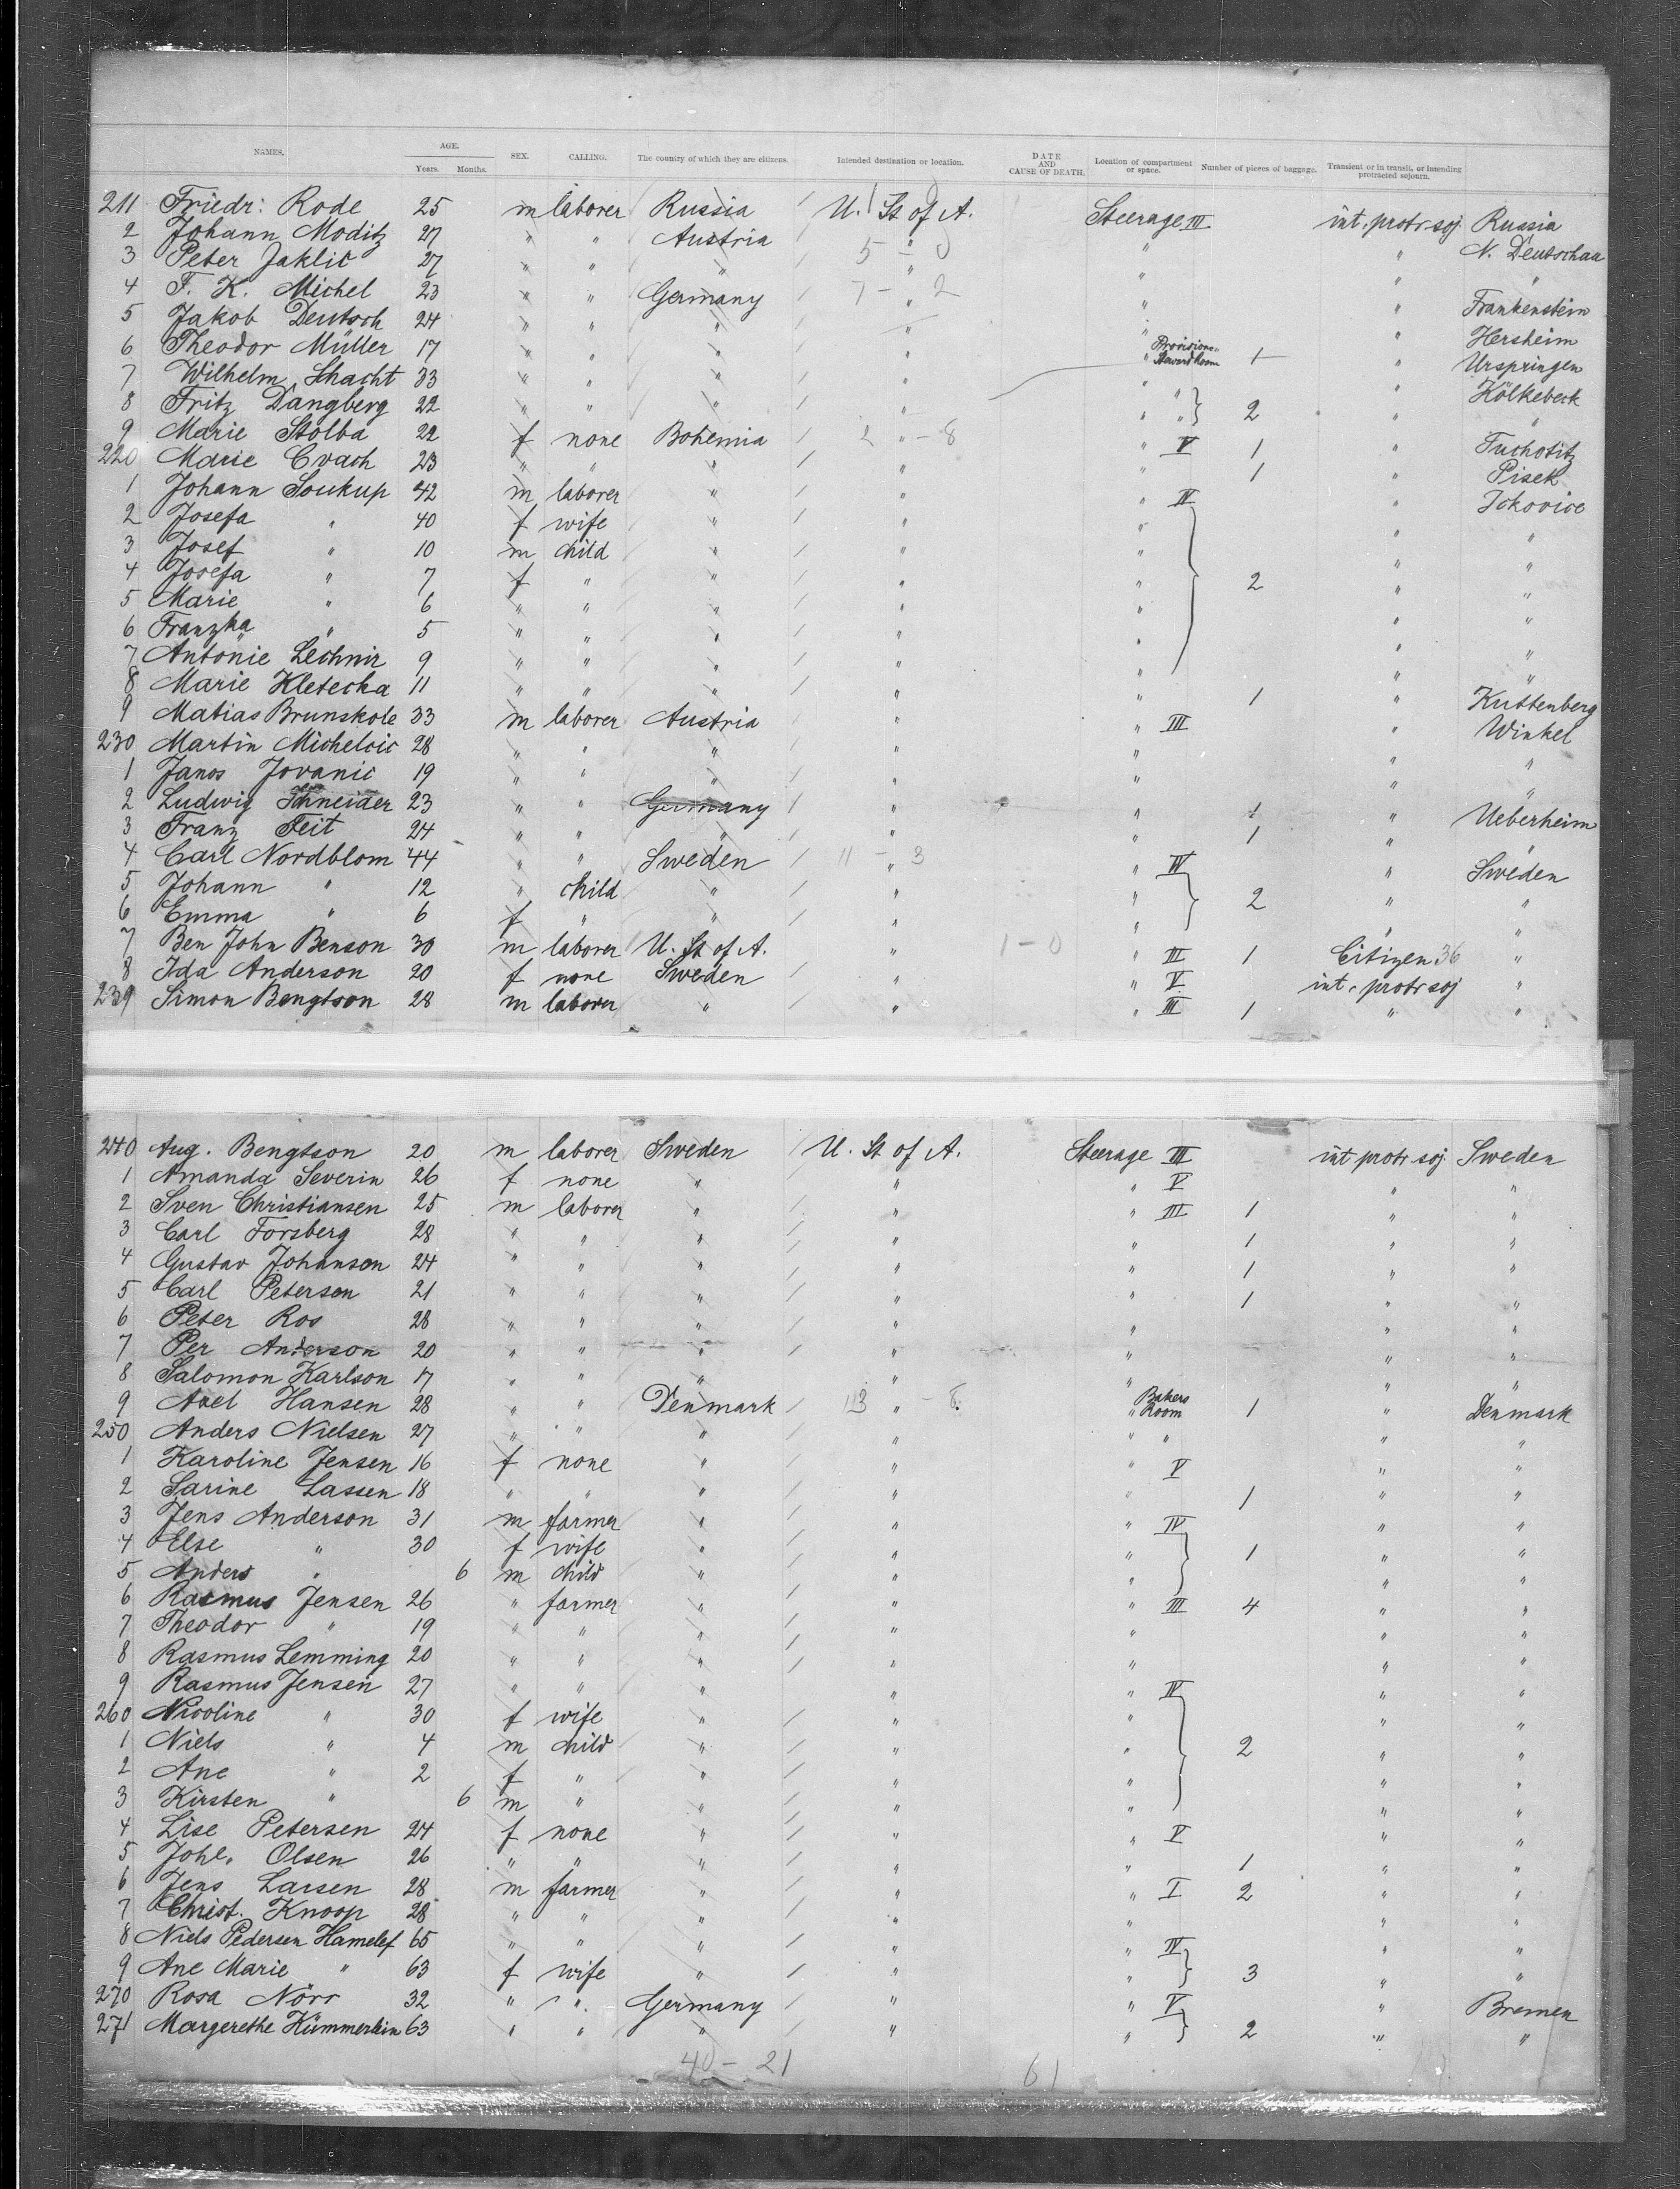 NAMES. AGE. SEX. CALLING. The country of which they are citizens. Intended destination or location. DATE AND CAUSE OF DEATH. Location of compartment or space. Number of pieces of baggage. Transient or in transit, or intending protracted sojourn.
Years. Months.
211 Friedr: Rode 25 m laborer Russia / U. St of A. Steerage III int. protr. soj. Russia
2 Johann Moditz 27 " " Austria / 5 " 0 " " N. Deutschau
3 Peter Jaklic 27 " " " / " " " "
4 F. K. Michel 23 " " Germany / 7 - " 2 " " Frankenstein
5 Jakob Deutsch 24 " " " / " " " Hersheim
6 Theodor Müller 17 " " " / " " Provisions Steward Room 1 " Urspringen
7 Wilhelm Schacht 33 " " " / " " " " Kölkebeck
8 Fritz Dangberg 22 " " " / " " " 2 " "
9 Marie Stolba 22 f none Bohemia / 2 " - 8 " V 1 " Tuchotitz
220 Marie Cvach 23 " " " / " " 1 " Pisek
1 Johann Soukup 42 m laborer " / " " IV " Ickovice
2 Josefa " 40 f wife " / " " " "
3 Josef " 10 m child " / " " " "
4 Josefa " 7 f " " / " " 2 " "
5 Marie " 6 " " " / " " " "
6 Franzka " 5 " " " / " " " "
7 Antonie Lechnir 9 " " " / " " " "
8 Marie Kletecka 11 " " " / " " 1 " Kuttenberg
9 Matias Brunskole 33 m laborer Austria / " " III " Winkel
230 Martin Michelcic 28 " " " / " " " "
1 Janos Jovanic 19 " " " / " " " "
2 Ludwig Schneider 23 " " Germany / " " 1 " Ueberheim
3 Franz Feit 24 " " " / " " 1 " "
4 Carl Nordblom 44 " " Sweden / 11 - " 3 " IV " Sweden
5 Johann " 12 " child " / " " 2 " "
6 Emma " 6 f " " / " " " "
7 Ben John Benson 30 m laborer U. St of A. " 1 - 0 " III 1 Citizen 36 "
8 Ida Anderson 20 f none Sweden / " " V int. protr soj "
239 Simon Bengtson 28 m laborer " " " III 1 " "
240 Aug. Bengtson 20 m laborer Sweden / U. St of A. Steerage III int protr soj. Sweden
1 Amanda Severin 26 f none " / " " V " "
2 Sven Christiansen 25 m laborer " / " " III 1 " "
3 Carl Forsberg 28 " " " / " " 1 " "
4 Gustav Johanson 24 " " " / " " 1 " "
5 Carl Peterson 21 " " " / " " 1 " "
6 Peter Ros 28 " " " / " " " "
7 Per Anderson 20 " " " / " " " "
8 Salomon Karlson 17 " " " " " " "
9 Axel Hansen 28 " " Denmark / 13 " - 8 " Bakers Room 1 " Denmark
250 Anders Nielsen 27 " " " / " " " " "
1 Karoline Jensen 16 f none " / " " V " "
2 Sarine Lassen 18 " " " / " " 1 " "
3 Jens Anderson 31 m farmer " / " " IV " "
4 Else " 30 f wife " / " " 1 " "
5 Anders " 6 m child " / " " " "
6 Rasmus Jensen 26 " farmer " / " " III 4 " "
7 Theodor " 19 " " " / " " " "
8 Rasmus Lemming 20 " " " / " " " "
9 Rasmus Jensen 27 " " " / " " IV " "
260 Nicoline " 30 f wife " / " " " "
1 Niels " 4 m child " / " " 2 " "
2 Ane " 2 f " " / " " " "
3 Kirsten " 6 m " " / " " " "
4 Lise Petersen 24 f none " / " " V " "
5 Johe. Olsen 26 " " " / " " 1 " "
6 Jens Larsen 28 m farmer " / " " I 2 " "
7 Christ. Knoop 28 " " " / " " " "
8 Niels Pedersen Hamelef 65 " " " / " " IV " "
9 Ane Marie " 63 f wife " / " " 3 " "
270 Rosa Nörr 32 " " Germany / " " V " Bremen
271 Margerethe Kümmerlein 63 " " " / " " 2 " "
40 - 21 61